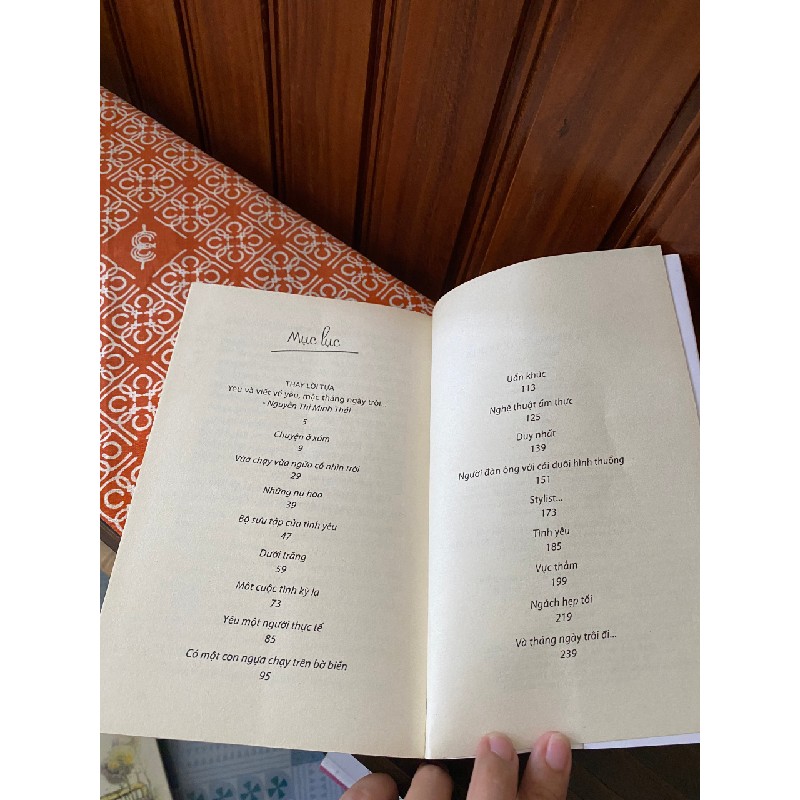 Mục lục
THAY LỜI TỰA
Yêu và việc vô yêu, mặc tháng ngày trôi
- Nguyễn Thị Minh Thái
5
Chuyện ở xóm
9
Vừa chạy vừa ngửa cổ nhìn trời
29
Những nụ hôn
39
Bộ sưu tập của tình yêu
47
Dưới trăng
59
Một cuộc tình kỳ lạ
73
Yêu một người thực tế
85
Có một con ngựa chạy trên bờ biển
95
Uẩn khúc
113
Nghệ thuật ẩm thực
125
Duy nhất
139
Người đàn ông với cái đuôi hình thuồng
151
Stylist...
173
Tình yêu
185
Vực thẳm
199
Ngách hẹp tối
219
Và tháng ngày trôi đi...
239